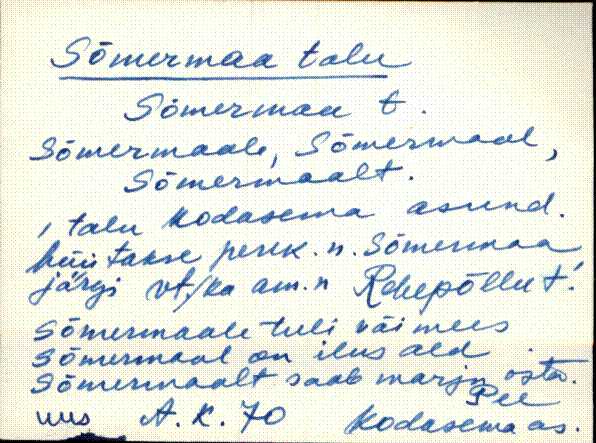 Sõmermaa talu
Sõmermaa t.
Sõmermaale, Sõmermaal,
Sõmermaalt.
, talu Kodasema asund.
hüütakse perek.n. Sõmermaa
järgi vt/ka am.n Rehepõllu t!
Sõmermaale tuli väimees
Sõmermaal on ilus aid
Sõmermaalt saab marju osta.
Pee
uus A.K.70 Kodasema as.